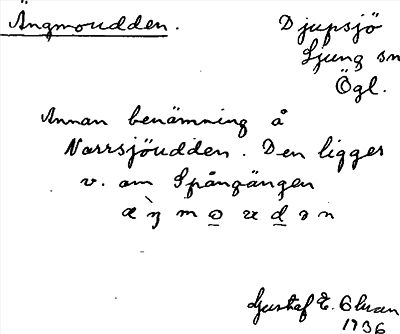 Ängmoudden. Djupsjö
Ljung sn
Ögl.
Annan benämning å
Norrsjöudden. Den ligger
v. om Spångängen
Gustaf E. Olsson
1936